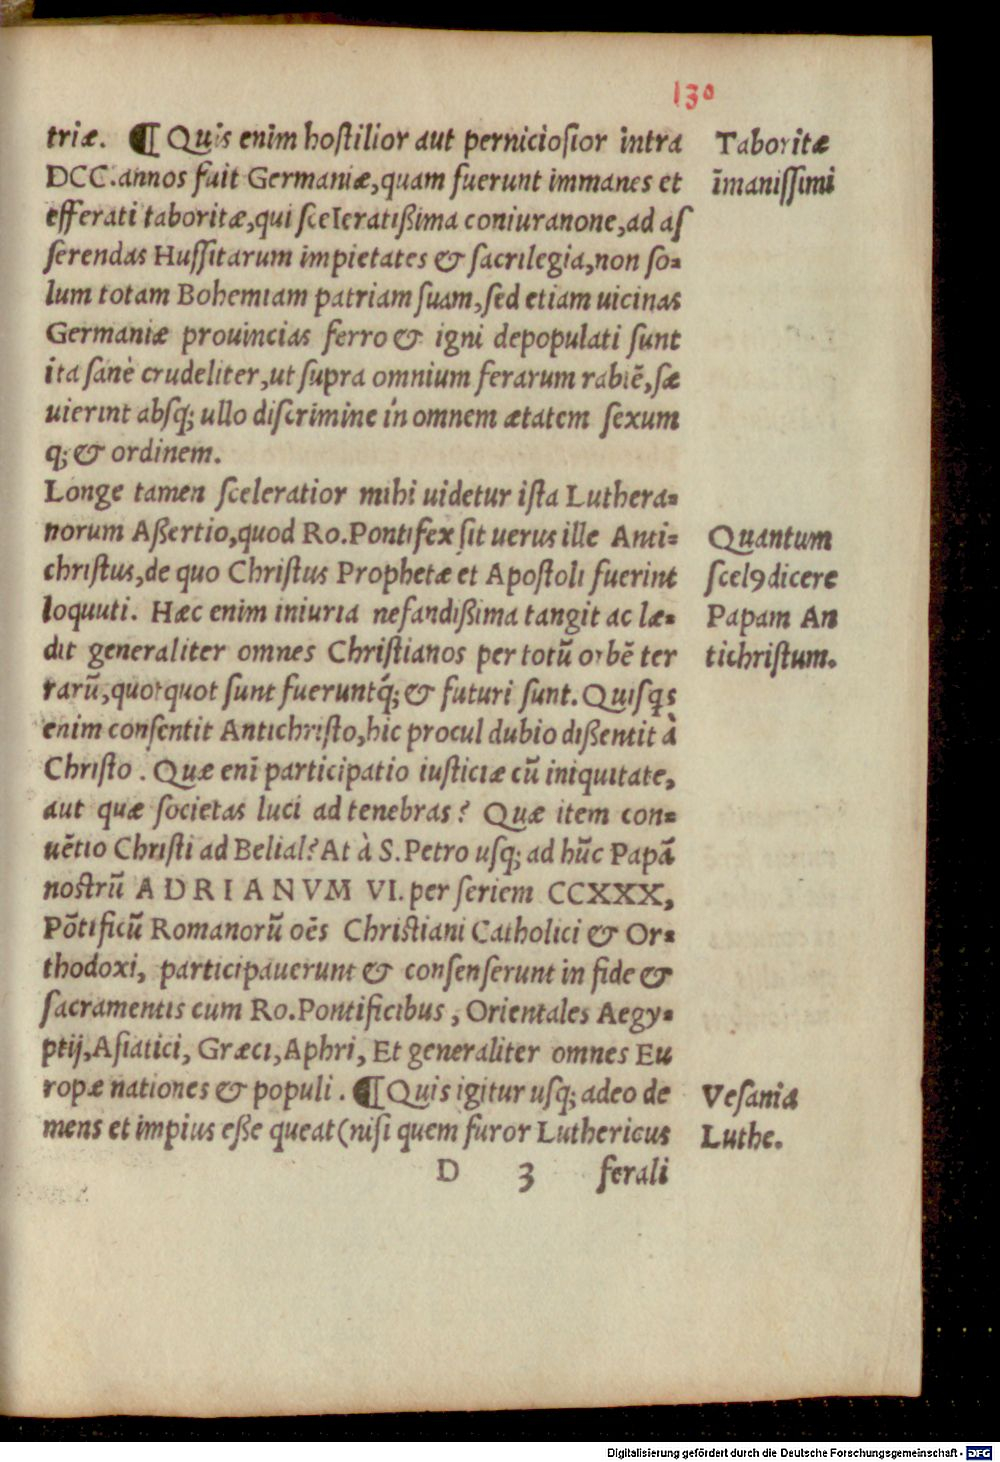 130
triæ. ¶ Quis enim hostilior aut perniciosior intra
DCC. annos fuit Germaniæ, quam fuerunt immanes et
efferati taboritæ, qui sceleratißima coniuranone, ad aſ
ſerendas Huſſitarum impietates & sacrilegia, non ſo⸗
lum totam Bohemiam patriam ſuam, ſed etiam uicinas
Germaniæ prouincias ferro & igni depopulati ſunt
ita ſanè crudeliter, ut ſupra omnium ferarum rabiē, ſæ
uierint abſq; ullo diſcrimine in omnem ætatem ſexum
q; & ordinem.
Longe tamen ſceleratior mihi uidetur iſta Luthera⸗
norum Aßertio, quod Ro. Pontifex ſit uerus ille Anti⸗
chriſtus, de quo Chriſtus Prophetæ et Apoſtoli fuerint
loquuti. Hæc enim iniuria nefandißima tangit ac læ⸗
dit generaliter omnes Chriſtianos per totū orbē ter
rarū, quotquot ſunt fueruntq́; & futuri ſunt. Quiſqs
enim conſentit Antichriſto, hic procul dubio dißentit à
Chriſto. Quæ enī participatio iuſticiæ cū iniquitate,
aut quæ ſocietas luci ad tenebras? Quæ item con⸗
uētio Chriſti ad Belial? At à S. Petro uſq; ad hūc Papā
noſtrū ADRIANVM VI. per ſeriem CCXXX,
Pōtificū Romanorū oēs Chriſtiani Catholici & Or⸗
thodoxi, participauerunt & conſenſerunt in fide &
ſacramentis cum Ro. Pontificibus, Orientales Aegy⸗
ptij, Aſiatici, Græci, Aphri, Et generaliter omnes Eu
ropæ nationes & populi. ¶ Quis igitur uſq; adeo de
mens et impius eße queat (niſi quem furor Luthericus
D 3 ferali
Taboritæ
īmaniſſimi
Quantum
ſcelꝰ dicere
Papam An
tichriſtum.
Veſania
Luthe.
Digitalisierung gefördert durch die Deutsche Forschungsgemeinschaft - DFG